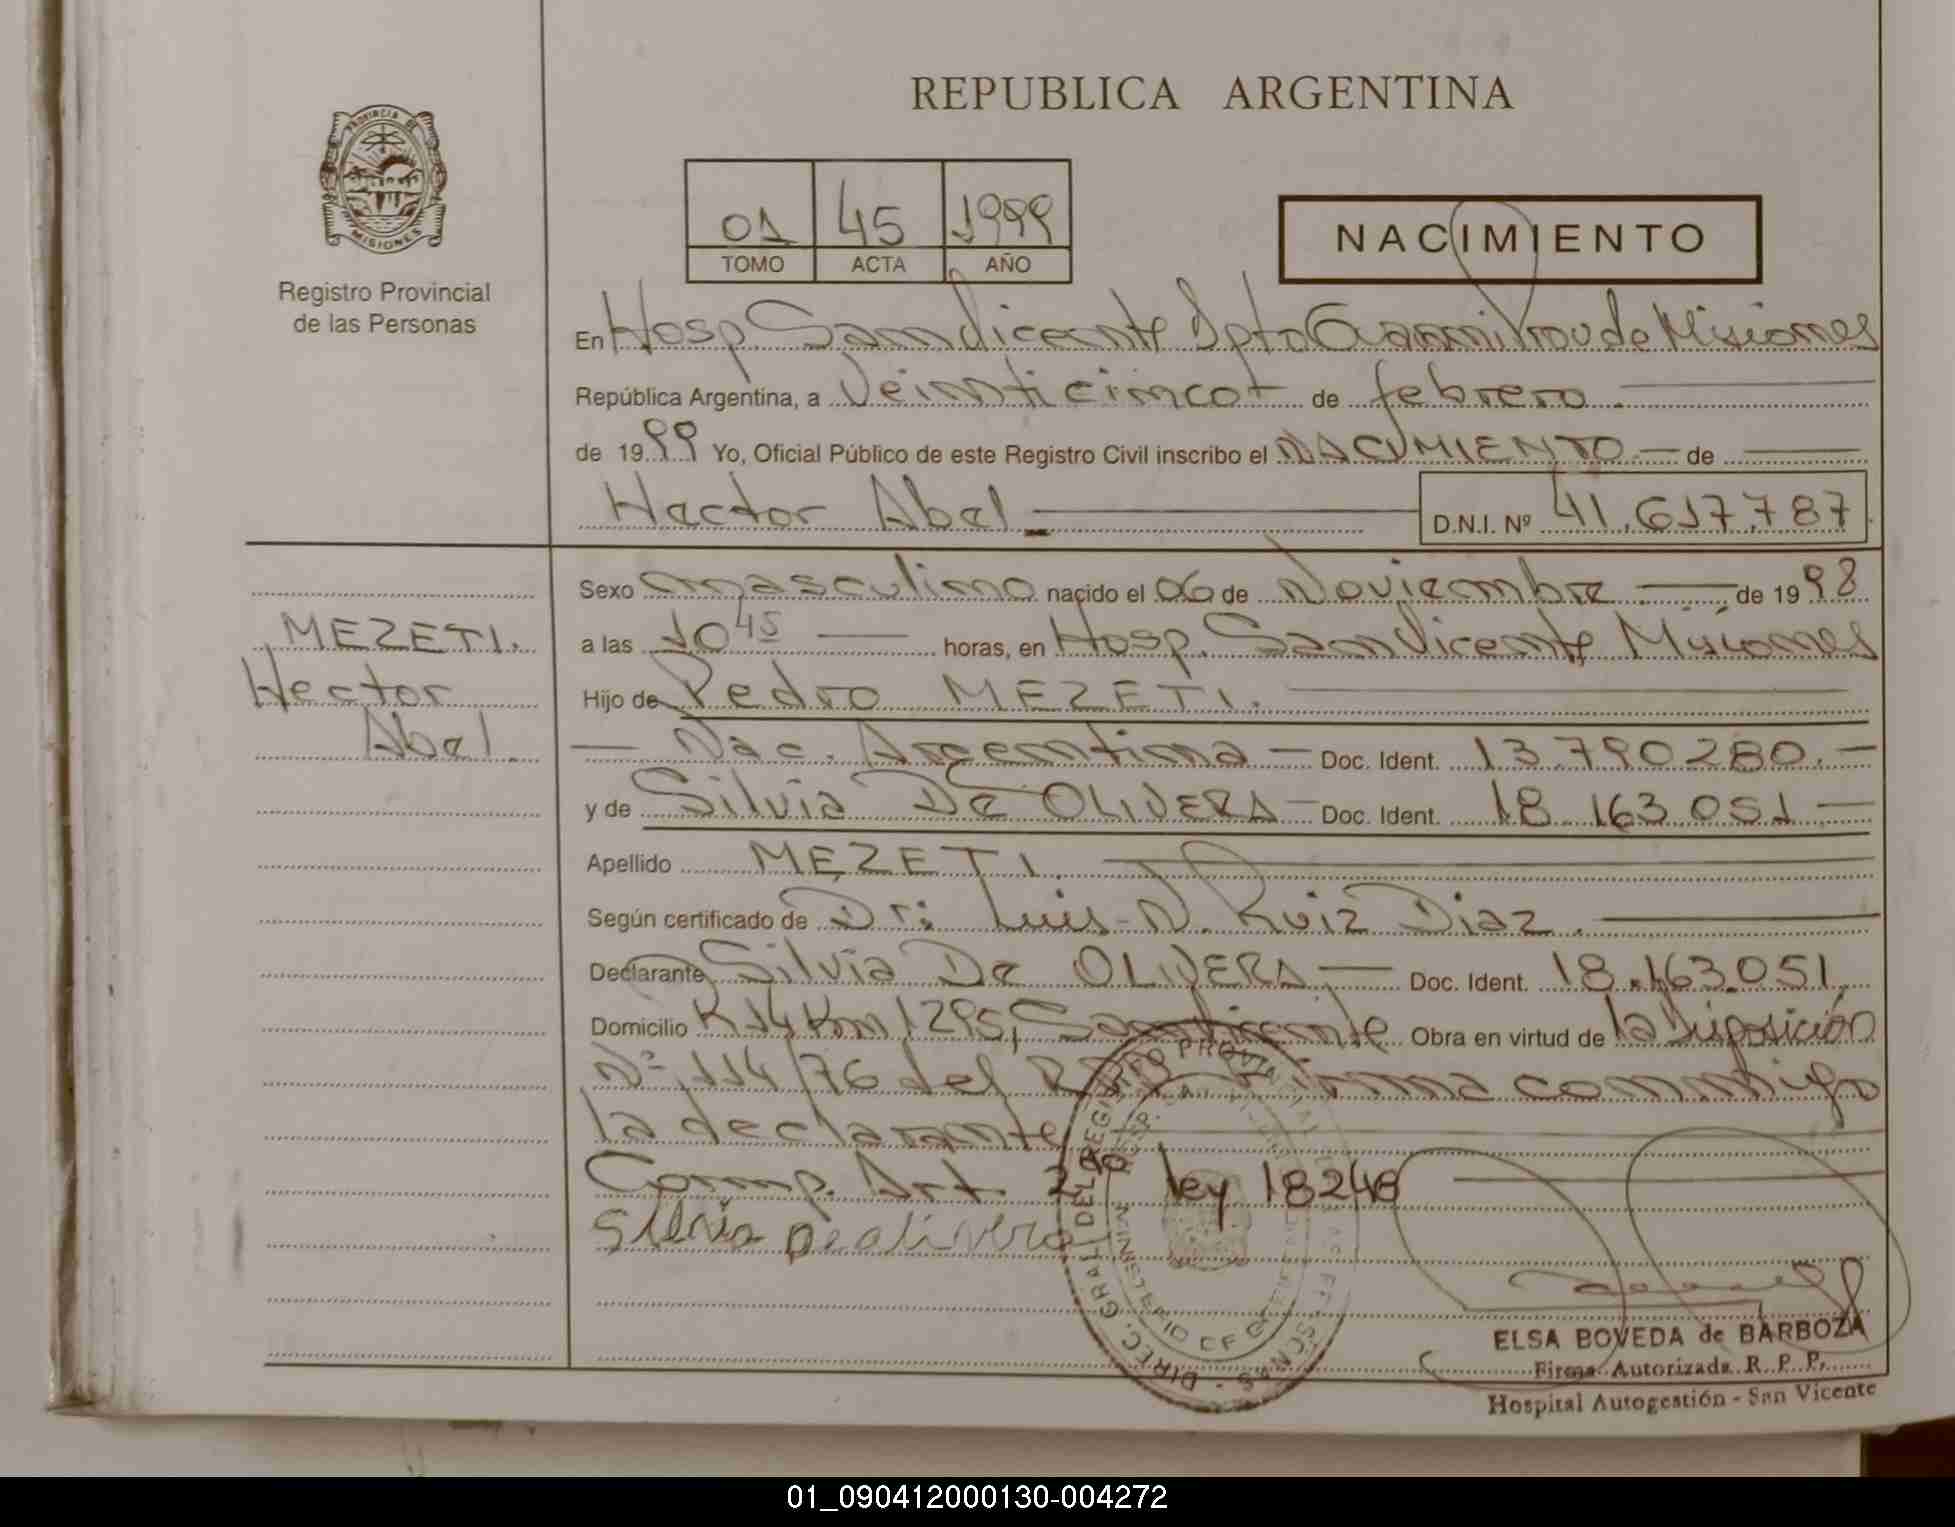 REPUBLICA ARGENTINA
PROVINCIA DE
MISIONES
Registro Provincial
de las Personas
01 45 1999
TOMO ACTA AÑO
NACIMIENTO
En Hosp. San Vicente Dpto Guaraní Prov de Misiones
República Argentina, a Veinticinco de febrero.
de 1999 Yo, Oficial Público de este Registro Civil inscribo el NACIMIENTO de
Hector Abel
D.N.I. Nº 41.617.787
MEZETI.
Hector
Abel.
Sexo masculino nacido el 06 de Noviembre de 1998
a las 10 45 horas, en Hosp. San Vicente Misiones
Hijo de Pedro MEZETI.
Nac. Argentina Doc. Ident. 13.790280.
y de Silvia De OLIVERA Doc. Ident. 18.163.051
Apellido MEZETI.
Según certificado de Dr: Luis N. Ruiz Diaz.
Declarante Silvia De OLIVERA Doc. Ident. 18.163.051
Domicilio R 14 Km 1295, San Vicente Obra en virtud de la Disposición
Nº 114/76 del Firma conmigo
la declarante
Comp. Art. 2 ley 18248
Silvia De olivera
DIREC. GRAL DEL REGISTRO PROVINCIAL DE LAS PERSONAS
MINISTERIO DE GOBIERNO
ELSA BOVEDA de BARBOZA
Firma Autorizada R. P. P.
Hospital Autogestión - San Vicente
01_090412000130-004272